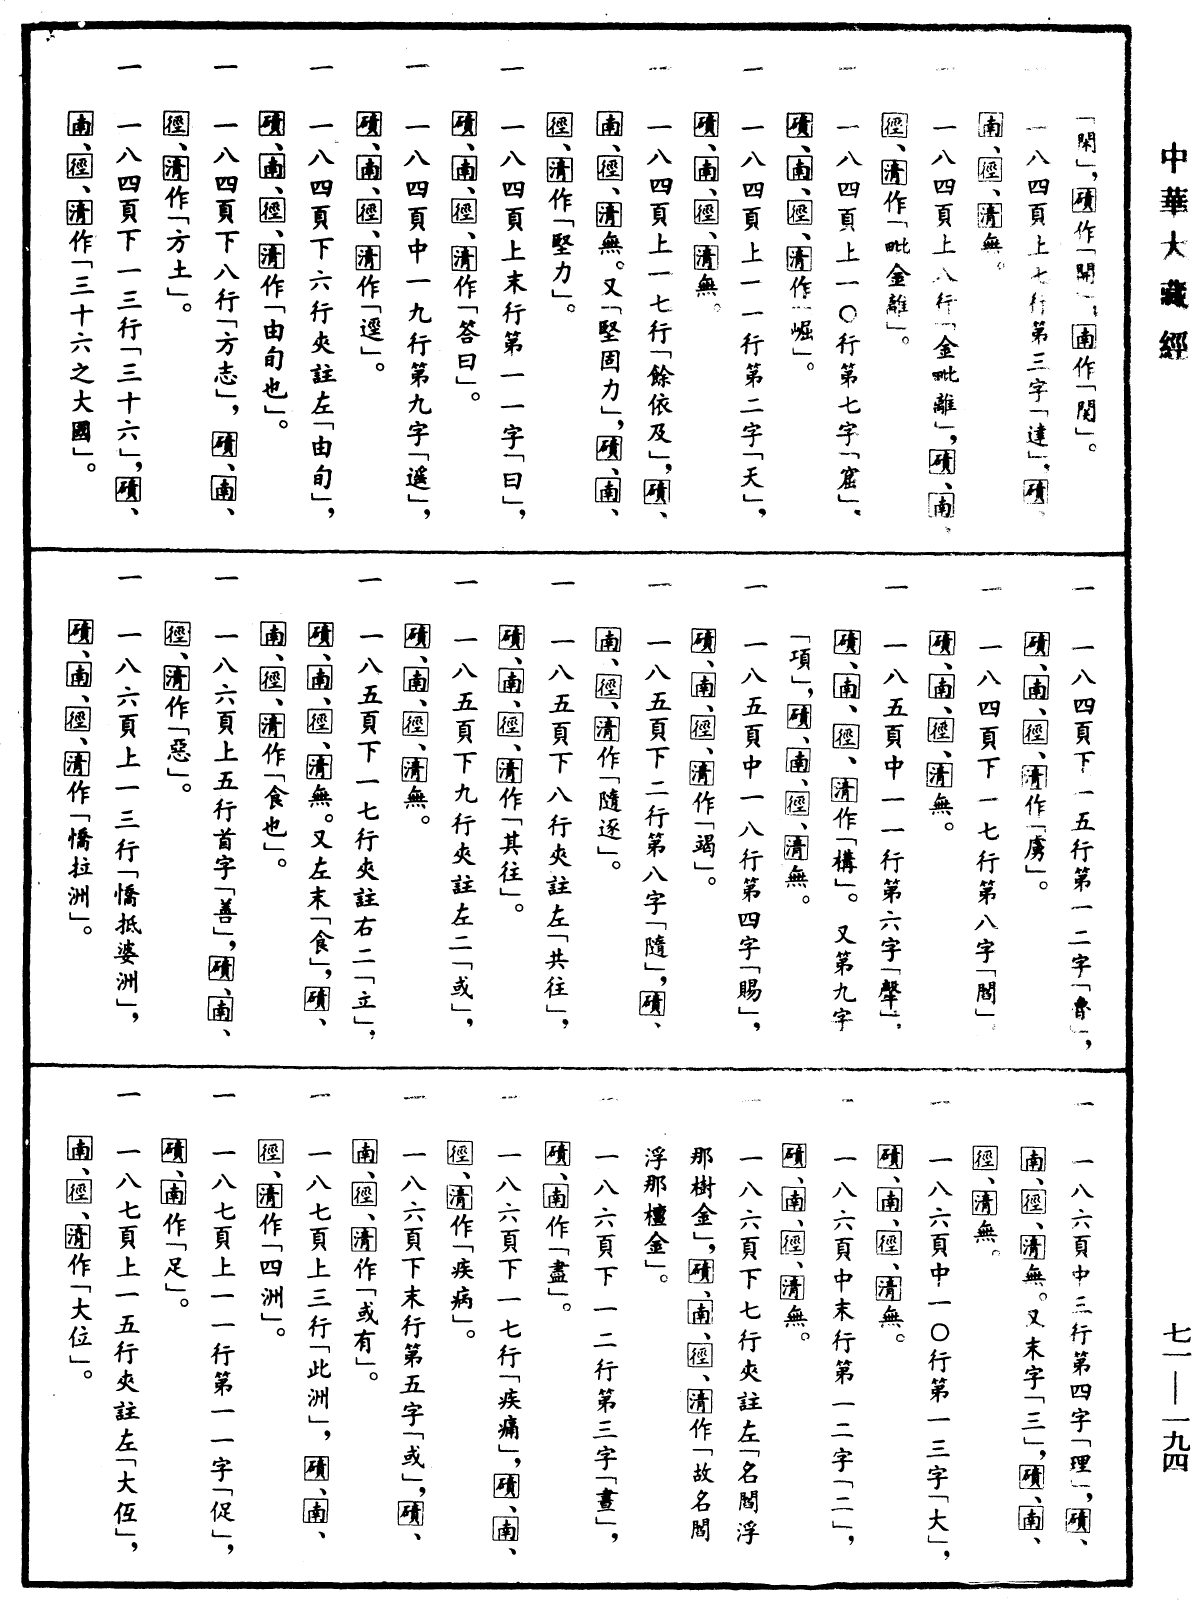 中華大藏經
「閑」，磧作「開」，南作「閔」。
一 一八四頁上七行第三字「達」，磧、
南、徑、清無。
一 一八四頁上八行「金毗離」，磧、南、
徑、清作「毗金離」。
一 一八四頁上一〇行第七字「窟」，
磧、南、徑、清作「崛」。
一 一八四頁上一一行第二字「天」，
磧、南、徑、清無。
一 一八四頁上一七行「餘依及」，磧、
南、徑、清無。又「堅固力」，磧、南、
徑、清作「堅力」。
一 一八四頁上末行第一一字「曰」，
磧、南、徑、清作「答曰」。
一 一八四頁中一九行第九字「遥」，
磧、南、徑、清作「逕」。
一 一八四頁下六行夾註左「由旬」，
磧、南、徑、清作「由旬也」。
一 一八四頁下八行「方志」，磧、南、
徑、清作「方土」。
一 一八四頁下一三行「三十六」，磧、
南、徑、清作「三十六之大國」。
一 一八四頁下一五行第一二字「魯」，
磧、南、徑、清作「虜」。
一 一八四頁下一七行第八字「閻」，
磧、南、徑、清無。
一 一八五頁中一一行第六字「㲉」，
磧、南、徑、清作「構」。又第九字
「項」，磧、南、徑、清無。
一 一八五頁中一八行第四字「賜」，
磧、南、徑、清作「竭」。
一 一八五頁下二行第八字「隨」，磧、
南、徑、清作「隨逐」。
一 一八五頁下八行夾註左「共往」，
磧、南、徑、清作「其往」。
一 一八五頁下九行夾註左二「或」，
磧、南、徑、清無。
一 一八五頁下一七行夾註右二「立」，
磧、南、徑、清無。又左末「食」，磧、
南、徑、清作「食也」。
一 一八六頁上五行首字「善」，磧、南、
徑、清作「惡」。
一 一八六頁上一三行「憍抵婆洲」，
磧、南、徑、清作「憍拉洲」。
一 一八六頁中三行第四字「理」，磧、
南、徑、清無。又末字「三」，磧、南、
徑、清無。
一 一八六頁中一〇行第一三字「大」，
磧、南、徑、清無。
一 一八六頁中末行第一二字「二」，
磧、南、徑、清無。
一 一八六頁下七行夾註左「名閻浮
那樹金」，磧、南、徑、清作「故名閻
浮那檀金」。
一 一八六頁下一二行第三字「晝」，
磧、南作「盡」。
一 一八六頁下一七行「疾痛」，磧、南、
徑、清作「疾病」。
一 一八六頁下末行第五字「或」，磧、
南、徑、清作「或有」。
一 一八七頁上三行「此洲」，磧、南、
徑、清作「四洲」。
一 一八七頁上一一行第一一字「促」，
磧、南作「足」。
一 一八七頁上一五行夾註左「大㐰」，
南、徑、清作「大位」。
七一—一九四